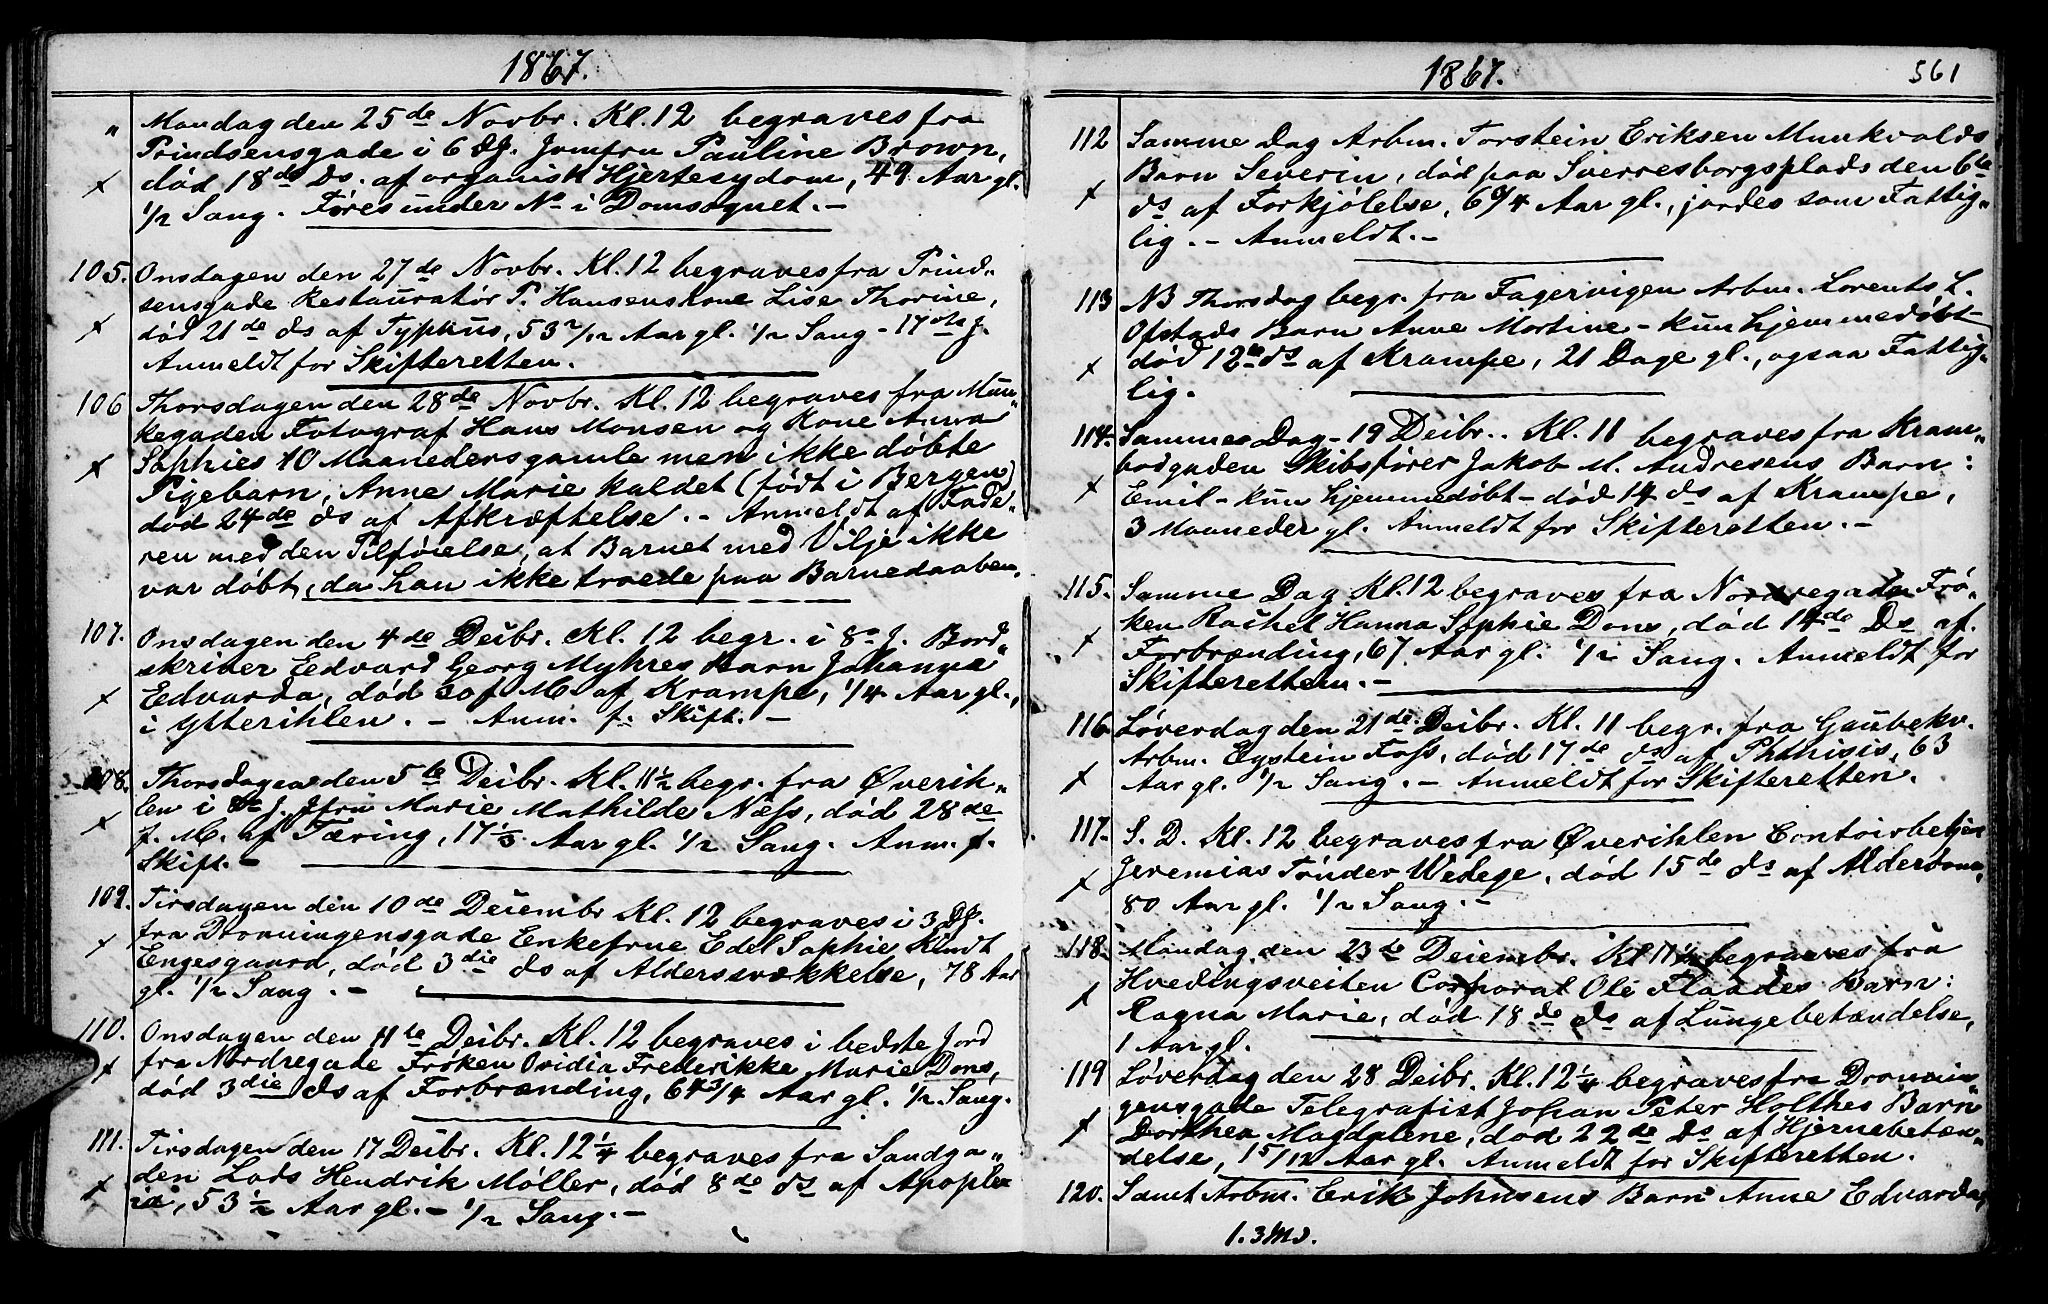 1867.
" Mandag den 25de Novbr. Kl. 12 begraves fra
Prindsensgade i 6 Dj. Jomfru Pauline Brown,
død 18de Ds. af organisk Hjertesydom, 49 Aar gl.
1/2 Sang. Føres under No i Domsognet. -
105. Onsdagen den 27de Novbr. Kl. 12 begraves fra Prind-
sensgade Restauratør P. Hansens Kone Lise Thorine,
død 21de ds af Typhus, 53 2/12 Aar gl. 1/2 Sang - 17
Anmeldt for Skifteretten.
106 Thorsdagen den 28de Novbr. Kl. 12 begraves fra Mun-
kegaden Fotograf Hans Monsen og Kone Anna
Sophies 10 Maanedersgamle men ikke døbte
Pigebarn, Anne Marie kaldet (født i Bergen)
død 24de ds af Afkræftelse. - Anmeldt af Fade-
ren med den Tilføielse, at Barnet med Vilje ikke
var døbt, da han ikke troede paa Barnedaaben.
107. Onsdagen den 4de Decbr. Kl. 12 begr. i 8de J. Bord-
skriver Eedvard Georg Myhres Barn Johanna
Edvarda, død 30 f. M. af Krampe, 1/4 Aar gl.,
i Ytterihlen. - Anm. f. Skift. -
108. Thorsdagen den 5te Decbr. Kl. 11 1/2 begr. fra Øverih-
len i J. Jfru Marie Mathilde Næss, død 28de
f. M. af Tæring, 17 1/3 Aar gl. 1/2 Sang. Anm. f.
Skift. -
109. Tirsdagen den 10de Decembr Kl. 12 begraves i 3 Dj.
fra Dronningensgade Enkefrue Edel Sophie Kundt
Engesgaard, død 3die ds af Alderssvækkelse, 78 Aar
gl. 1/2 Sang. -
110. Onsdagen den 11te Decbr. Kl. 12 begraves i bedste Jord
fra Nordregade Frøken Ovidia Frederikke Marie Dons,
død 3die ds af Forbrænding, 64 3/4 Aar gl. 1/2 Sang.
111. Tirsdagen den 17 Decbr. Kl. 12 1/4 begraves fra Sandga-
den Lars Hendrik Møller, død 8de ds af Apople-
xie, 53 1/2 Aar gl. - 1/2 Sang. -
1867. 561
112 Samme Dag Arbm. Torstein Eriksen Munkvolds
Barn Severin, død paa Sverresborgsplads den 6te
ds af Forkjølelse, 6 3/4 Aar gl., jordes som Fattig-
lig. - Anmeldt. -
113 NB Thorsdag begr. fra Fagervigen Arbm. Lorents L.
Ofstads Barn Anne Martine - kun hjemmedøbt -
død 12te ds af Krampe, 21 Dage gl., ogsaa Fattig-
lig.
114. Samme Dag - 19 Decbr. Kl. 11 begraves fra Kram-
bodgaden Skibsfører Jakob M. Andresens Barn:
Emil - kun hjemmedøbt - død 14 ds af Krampe,
3 Maaneder gl. Anmeldt for Skifteretten. -
115. Samme Dag Kl. 12 begraves fra Nordregaden Frø-
ken Rachel Hanna Sophie Dons, død 14de Ds af
Forbrænding, 67 Aar gl. 1/2 Sang. Anmeldt for
Skifteretten. -
116. Løverdag den 21de Decbr. Kl. 11 begr. fra Gaubekv.
Arbm. Eystein Foss, død 17de ds af Phthisis, 63
Aar gl. 1/2 Sang. - Anmeldt for Skifteretten.
117. S. D. Kl. 12 begraves fra Øverihlen Contoirbetjen
Jeremias Tønder Wedege, død 15de ds af Alderdom,
80 Aar gl. 1/2 Sang. -
118. Mandag den 23de Decembr. Kl 11 1/2 begraves fra
Hvedingsveiten Corporal Ole Flaades Barn:
Ragna Marie, død 18de ds af Lungebetændelse,
1 Aar gl.
119 Løverdag den 28 Decbr. Kl. 12 1/4 begraves fra Dronnin-
gensgade Telegrafist Johan Peter Holthes Barn
Dorthea Magdalene, død 22de Ds af Hjernebetæn-
delse, 1 5/12 Aar gl. Anmeldt for Skifteretten.
120. Samt Arbm. Erik Johnsens Barn Anne Edvarda,
1. 3 Md.